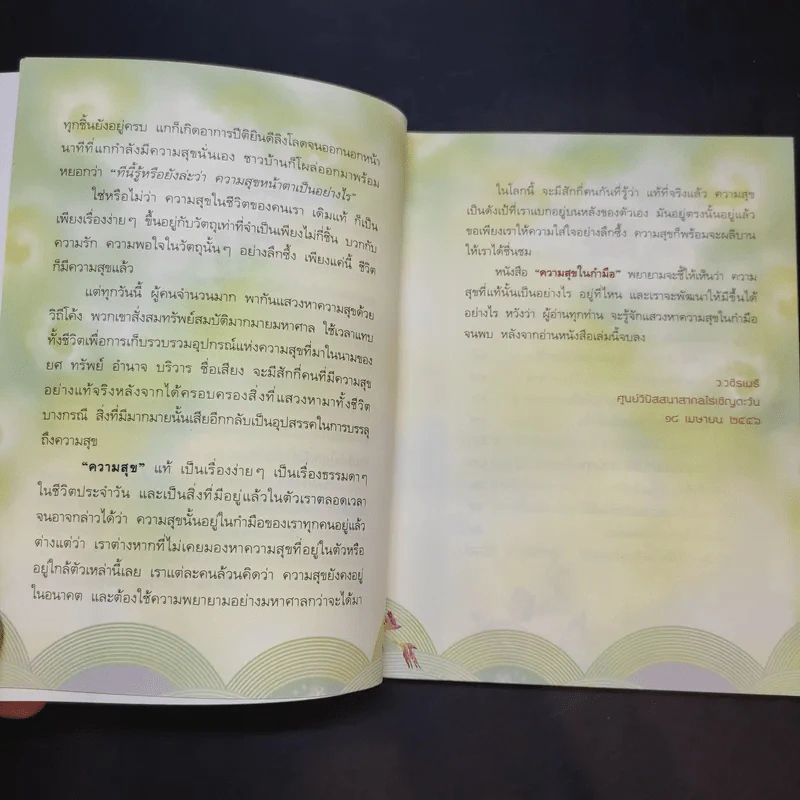 ทุกชิ้นยังอยู่ครบ แกก็เกิดอาการปีติยินดีลิงโลดจนออกนอกหน้า
นาทีที่แกกำลังมีความสุขนั่นเอง ชาวบ้านก็โผล่ออกมาพร้อม
หยอกว่า “ทีนี้รู้หรือยังล่ะว่า ความสุขหน้าตาเป็นอย่างไร”
ใช่หรือไม่ว่า ความสุขในชีวิตของคนเรา เดิมแท้ ก็เป็น
เพียงเรื่องง่ายๆ ขึ้นอยู่กับวัตถุเท่าที่จำเป็นเพียงไม่กี่ชิ้น บวกกับ
ความรัก ความพอใจในวัตถุนั้นๆ อย่างลึกซึ้ง เพียงแค่นี้ ชีวิต
ก็มีความสุขแล้ว
แต่ทุกวันนี้ ผู้คนจำนวนมาก พากันแสวงหาความสุขด้วย
วิถีโค้ง พวกเขาสั่งสมทรัพย์สมบัติมากมายมหาศาล ใช้เวลาแทบ
ทั้งชีวิตเพื่อการเก็บรวบรวมอุปกรณ์แห่งความสุขที่มาในนามของ
ยศ ทรัพย์ อำนาจ บริวาร ชื่อเสียง จะมีสักกี่คนที่มีความสุข
อย่างแท้จริงหลังจากได้ครอบครองสิ่งที่แสวงหามาทั้งชีวิต
บางกรณี สิ่งที่มีมากมายนั้นเสียอีกกลับเป็นอุปสรรคในการบรรลุ
ถึงความสุข
“ความสุข” แท้ เป็นเรื่องง่ายๆ เป็นเรื่องธรรมดาๆ
ในชีวิตประจำวัน และเป็นสิ่งที่มีอยู่แล้วในตัวเราตลอดเวลา
จนอาจกล่าวได้ว่า ความสุขนั้นอยู่ในกำมือของเราทุกคนอยู่แล้ว
ต่างแต่ว่า เราต่างหากที่ไม่เคยมองหาความสุขที่อยู่ในตัวหรือ
อยู่ใกล้ตัวเหล่านี้เลย เราแต่ละคนล้วนคิดว่า ความสุขยังคงอยู่
ในอนาคต และต้องใช้ความพยายามอย่างมหาศาลกว่าจะได้มา
ในโลกนี้ จะมีสักกี่คนกันที่รู้ว่า แท้ที่จริงแล้ว ความสุข
เป็นดังเป้ที่เราแบกอยู่บนหลังของตัวเอง มันอยู่ตรงนั้นอยู่แล้ว
ขอเพียงเราให้ความใส่ใจอย่างลึกซึ้ง ความสุขก็พร้อมจะผลิบาน
ให้เราได้ชื่นชม
หนังสือ “ความสุขในกำมือ” พยายามจะชี้ให้เห็นว่า ความ
สุขที่แท้นั้นเป็นอย่างไร อยู่ที่ไหน และเราจะพัฒนาให้มีขึ้นได้
อย่างไร หวังว่า ผู้อ่านทุกท่าน จะรู้จักแสวงหาความสุขในกำมือ
จนพบ หลังจากอ่านหนังสือเล่มนี้จบลง
ว.วชิรเมธี
ศูนย์วิปัสสนาสากลไร่เชิญตะวัน
๑๘ เมษายน ๒๕๕๖